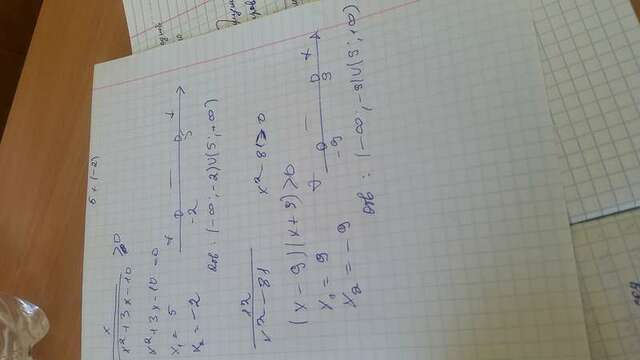 5 + (-2)
x
√x² + 3x - 10 > 0
x² + 3x - 10 = 0
x₁ = 5
x₂ = -2
+ — +
-2 5
(-∞; -2) ∪ (5; +∞)
12
√x² - 81
x² - 81 > 0
(x - 9)(x + 9) > 0
x₁ = 9
x₂ = -9
+ — +
-9 9
(-∞; -9) ∪ (9; +∞)